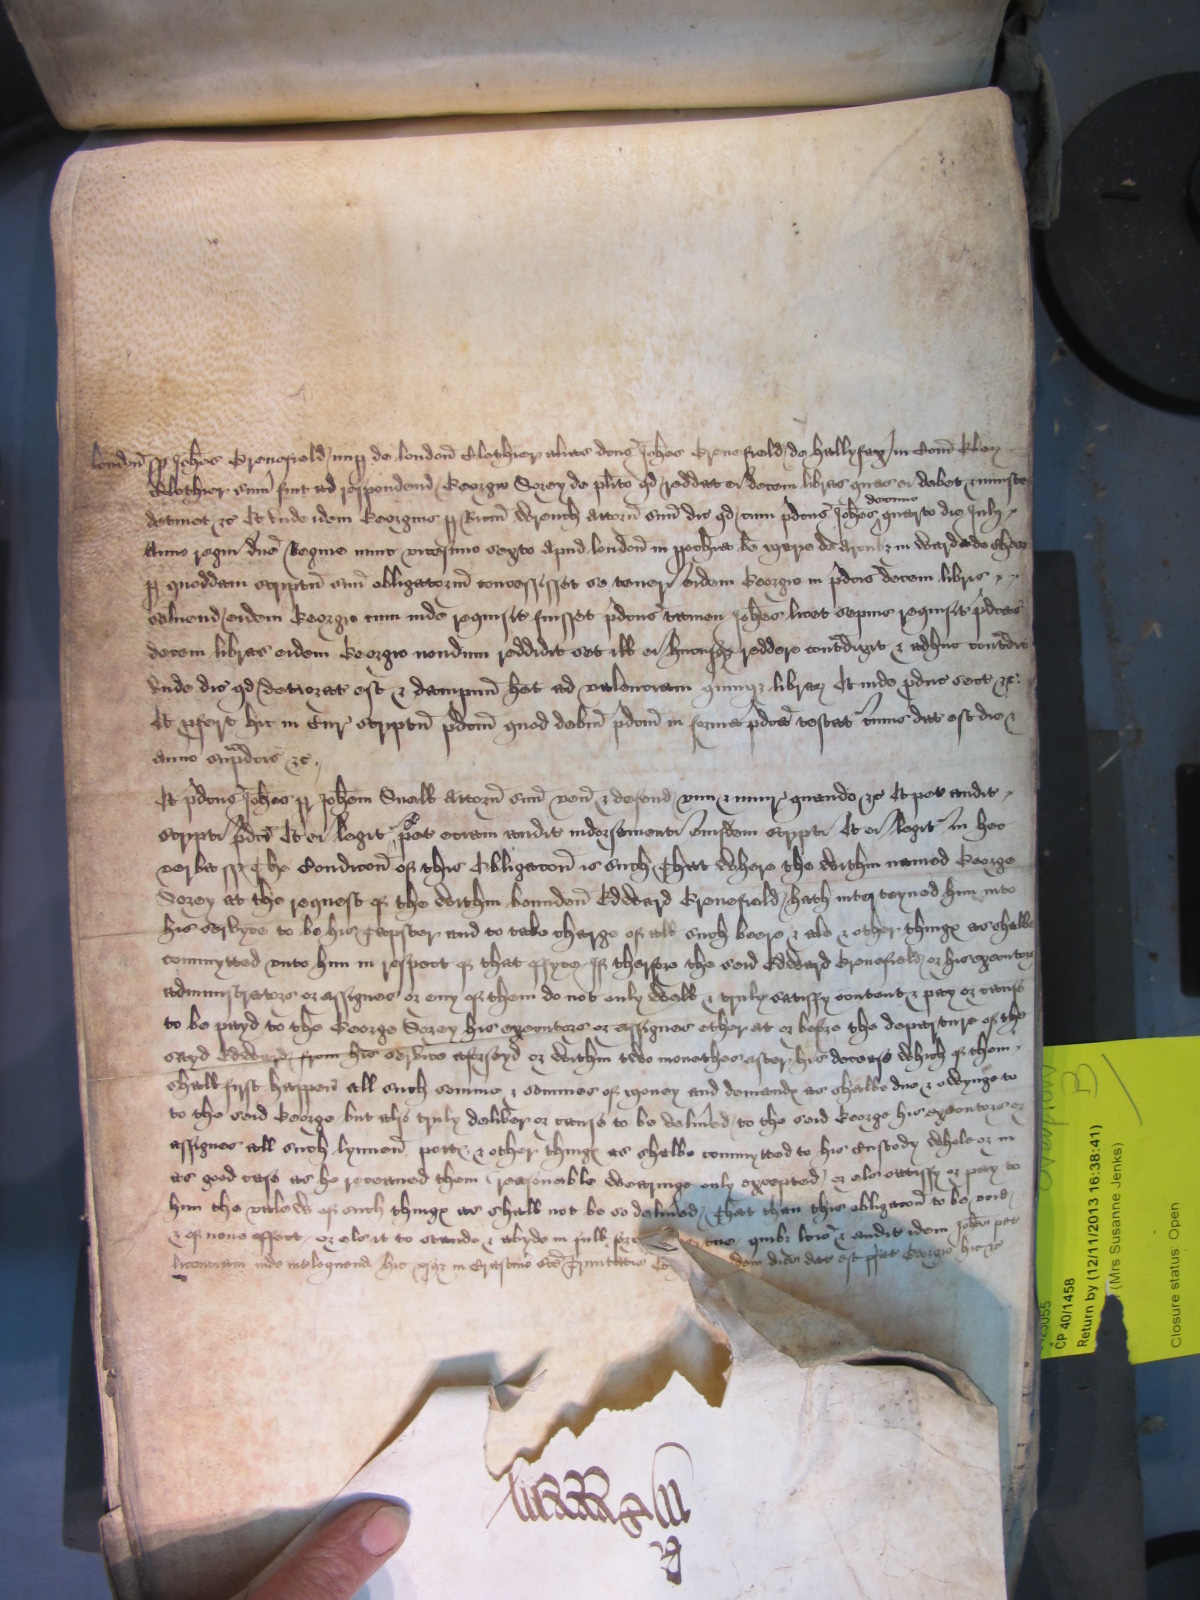 london ss Johes Grenefield nup de london Clothier alias dcus Johes Grenefield de hallyfax in Com Ebor
Clothier sum fuit ad respondend Georgio Sorey de plito qd reddat ei decem libras quas ei debet & iniuste
detinet &c Et unde idem Georgius p Ricm Wrench attorn suum dic qd cum pdcus Johes quarto decimo die Julij
Anno regni dne Regine nunc vicesimo sexto apud london in pochia be Marie de Arcubz in warda de Chepe
p quoddam scriptu suu obligatoriu concessisset se teneri eidem Georgio in pdcis decem libris
solvend eidem Georgio cum inde requisit fuisset pdcus tamen Johes licet sepius requisit pdcas
decem libras eidem Georgio nondum reddidit set ill ei hucusqz reddere contradixit & adhuc contradic
unde dic qd deteriorat est & dampnu het ad valenciam quinqz librar Et inde pduc sect &c
Et pfert hic in Cur scriptu pdcm quod debitu pdcm in forma pdca testat cuius dat est die &
anno supadcis &c
Et pdcus Johes p Johem Snell attorn suu ven & defend vim & iniur quando &c Et pet audit
scripti pdci Et ei legit &c pet eciam audit indorsamenti eiusdem scripti Et ei legit in hec
verba ss The Condicon of this Obligacon is such That where the within named George
Sorey at the request of the within bounden Edward Grenefield hath interteyned him into
his servyce to be his Tapster and to take charge of all such beere & ale & other things as shalbe
commytted unto him in respect of that offyce If therfore the said Edward Grenefield or his executors
administrators or assignes or eny of them do not only well & truly satisfy content & pay or cause
to be payd to the George Sorey his executors or assignes ether at or before the departure of the
sayd Edward from his service aforseyd or within two monethes after his decease which of them
shall fyrst happen all such somme & sommes of money and demands as shalbe due & owynge to
to the said George but also truly deliver or cause to be delivred to the said George his executors or
assignes all such lynnen potts & other things as shalbe commytted to his Custody whole or in
as good case as he receaved them reasonable wearinge only excepted or els satisfy or pay to
him the valew of such things as shall not be so delivred That than this obligacon to be void
& of none effect or els it to stande & abyde in full force vertue quibz lcis & audit idem Johes pet
licenciam inde interloquend hic usqz in Crastino sce Trinitatis idem dies dat est pfat Georgio hic &c
CP 40/1458
Return by (12/11/2013 16:38:41)
(Mrs Susanne Jenks)
Closure status: Open